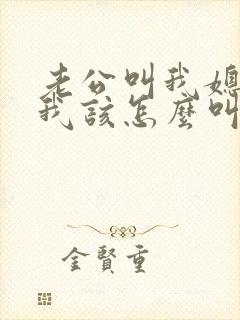 老公叫我媽
我該怎麼叫
金賢重